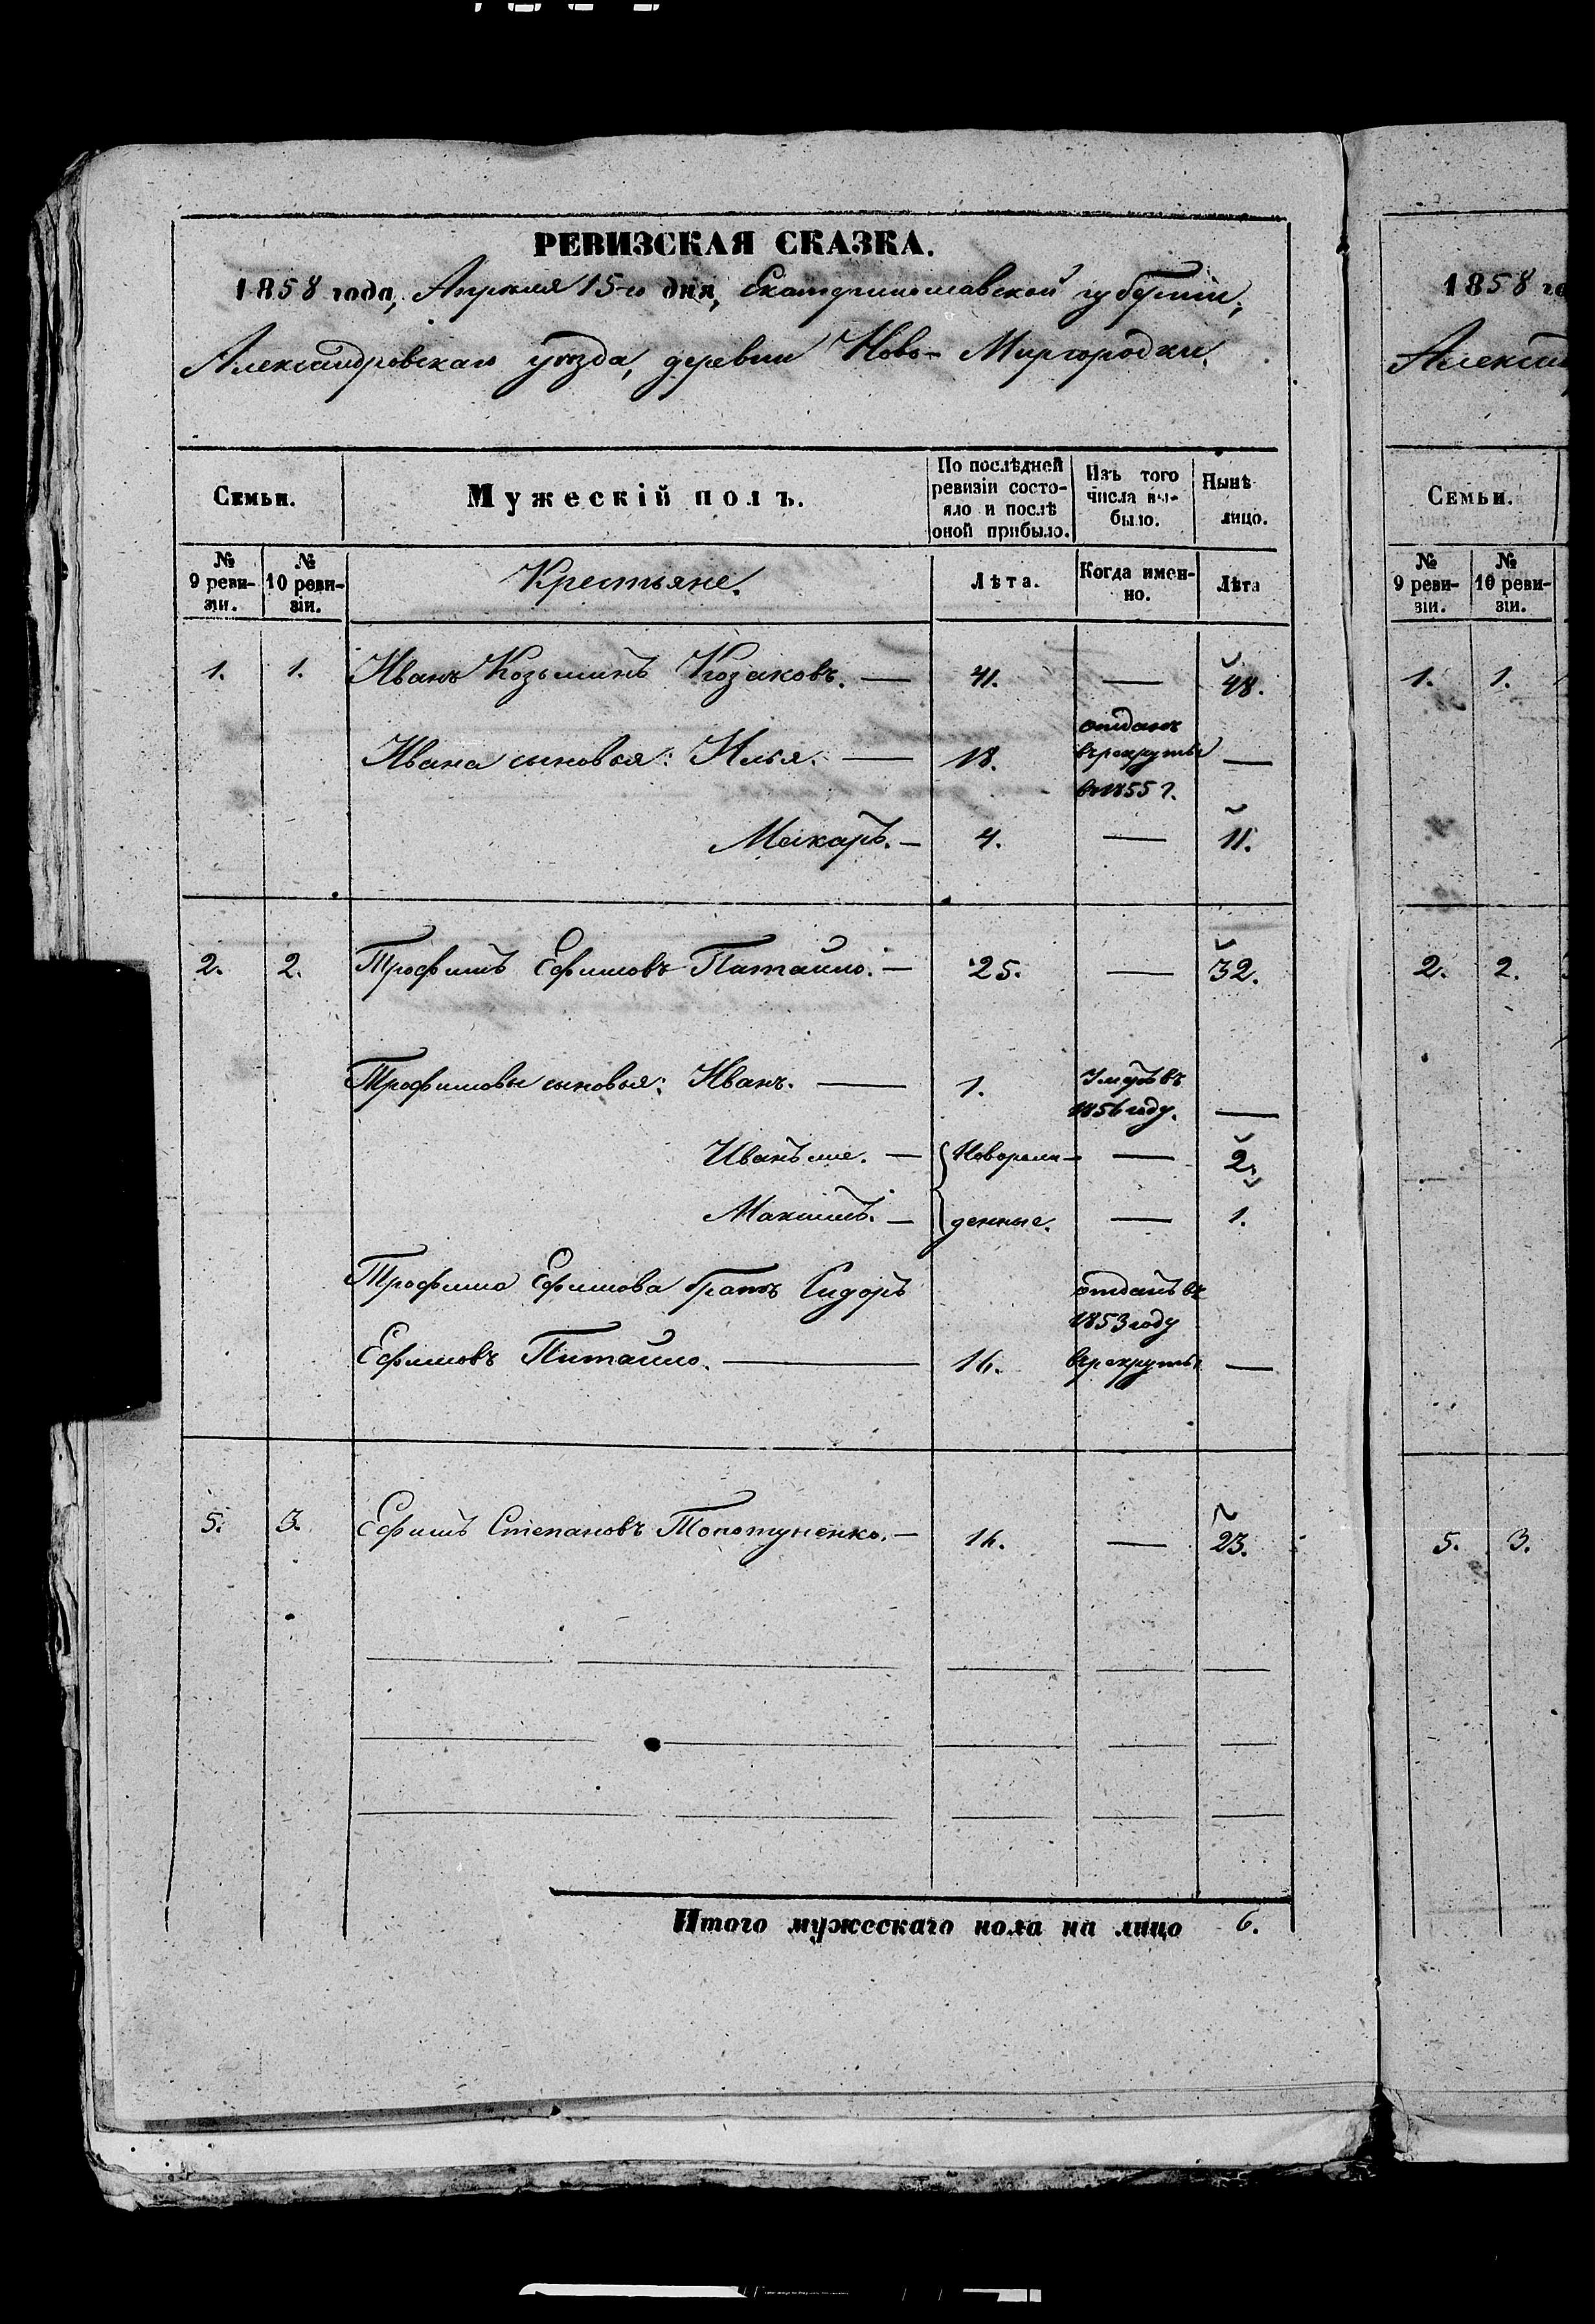 РЕВИЗСКАЯ СКАЗКА.
1858 года, Апреля 15-го дня, Екатеринославской губернiи,
Александровскаго уѣзда, деревни Ново-Миргородки.
Семьи.
Мужескій полъ.
По послѣдней ревизіи состояло и послѣ оной прибыло.
Изъ того числа выбыло.
Нынѣ лицо.
№ 9 ревизіи.
№ 10 ревизіи.
Крестьяне.
Лѣта.
Когда именно.
Лѣта
1. 1. Иванъ Козьминъ Козаковъ. — 41. — 48.
Ивана сыновья: Илья. — 18. отданъ въ рекруты в 1855 г. —
Макаръ. — 4. — 11.
2. 2. Трофимъ Ефимовъ Патайло. — 25. — 32.
Трофимовы сыновья: Иванъ. — 1. Умеръ въ 1856 году. —
Иванъ же. — Новорож- — 2.
Максимъ. — денные. — 1.
Трофима Ефимова братъ Сидоръ отданъ въ 1853 году
Ефимовъ Питайло. — 16. въ рекруты —
5. 3. Ефимъ Степановъ Топотуненко. — 16. — 23.
Итого мужескаго пола на лицо 6.
1858 го
Алекса
Семьи.
№ 9 ревизіи.
№ 10 ревизіи.
1. 1.
2. 2.
5. 3.